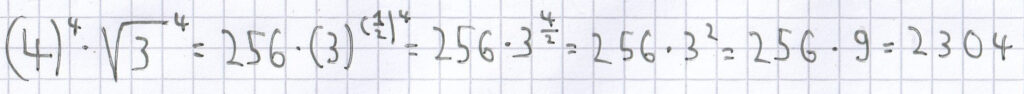 (4)⁴·√3⁴ = 256·(3)^(½)⁴ = 256·3^(4/2) = 256·3² = 256·9 = 2304